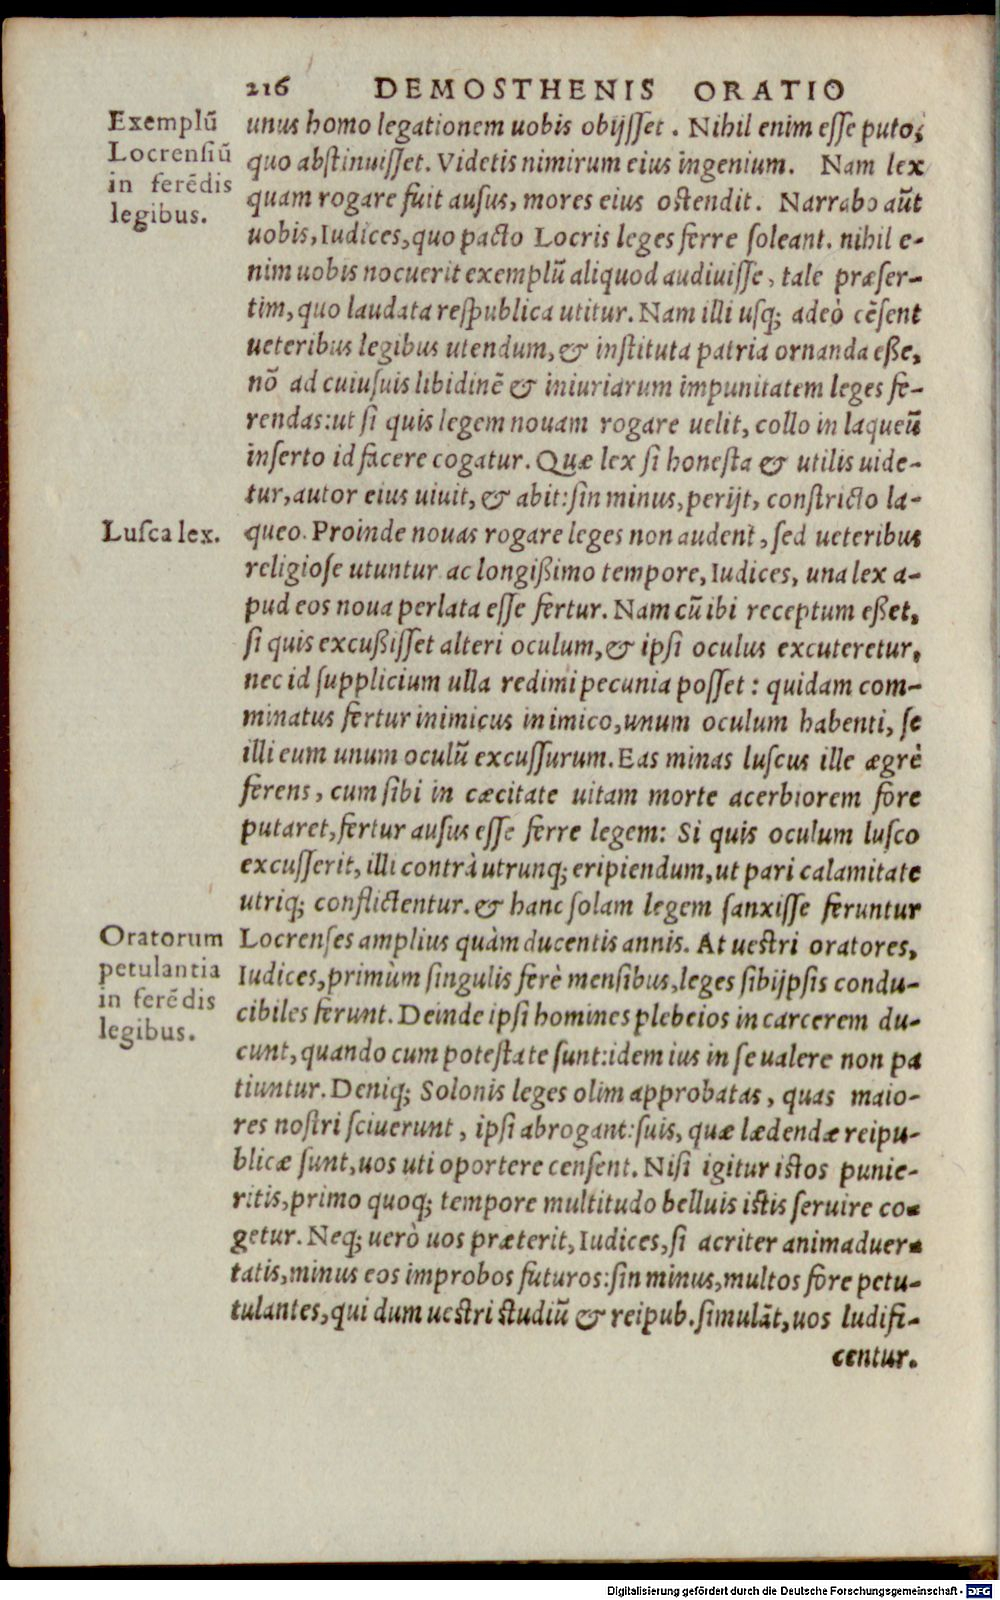 216 DEMOSTHENIS ORATIO
Exemplũ
Locrensiũ
in ferẽdis
legibus.
unus homo legationem uobis obijsset. Nihil enim esse puto,
quo abstinuisset. Videtis nimirum eius ingenium. Nam lex
quam rogare fuit ausus, mores eius ostendit. Narrabo aũt
uobis, Iudices, quo pacto Locris leges ferre soleant. nihil e-
nim uobis nocuerit exemplũ aliquod audiuisse, tale præser-
tim, quo laudata respublica utitur. Nam illi usq; adeò cẽsent
ueteribus legibus utendum, & instituta patria ornanda eße,
nõ ad cuiusuis libidinẽ & iniuriarum impunitatem leges fe-
rendas: ut si quis legem nouam rogare uelit, collo in laqueũ
inserto id facere cogatur. Quæ lex si honesta & utilis uide-
tur, autor eius uiuit, & abit: sin minus, perijt, constricto la-
Lusca lex.
queo. Proinde nouas rogare leges non audent, sed ueteribus
religiose utuntur ac longißimo tempore, Iudices, una lex a-
pud eos noua perlata esse fertur. Nam cũ ibi receptum eßet,
si quis excußisset alteri oculum, & ipsi oculus excuteretur,
nec id supplicium ulla redimi pecunia posset: quidam com-
minatus fertur inimicus inimico, unum oculum habenti, se
illi eum unum oculũ excussurum. Eas minas luscus ille ægrè
ferens, cum sibi in cæcitate uitam morte acerbiorem fore
putaret, fertur ausus esse ferre legem: Si quis oculum lusco
excusserit, illi contrà utrunq; eripiendum, ut pari calamitate
utriq; conflictentur. & hanc solam legem sanxisse feruntur
Oratorum
petulantia
in ferẽdis
legibus.
Locrenses amplius quàm ducentis annis. At uestri oratores,
Iudices, primùm singulis ferè mensibus, leges sibijpsis condu-
cibiles ferunt. Deinde ipsi homines plebeios in carcerem du-
cunt, quando cum potestate sunt: idem ius in se ualere non pa
tiuntur. Deniq; Solonis leges olim approbatas, quas maio-
res nostri sciuerunt, ipsi abrogant: suis, quæ lædendæ reipu-
blicæ sunt, uos uti oportere censent. Nisi igitur istos punie-
ritis, primo quoq; tempore multitudo belluis istis seruire co-
getur. Neq; uerò uos præterit, Iudices, si acriter animaduer-
tatis, minus eos improbos futuros: sin minus, multos fore petu-
tulantes, qui dum uestri studiũ & reipub. simulãt, uos ludifi-
centur.
Digitalisierung gefördert durch die Deutsche Forschungsgemeinschaft - DFG